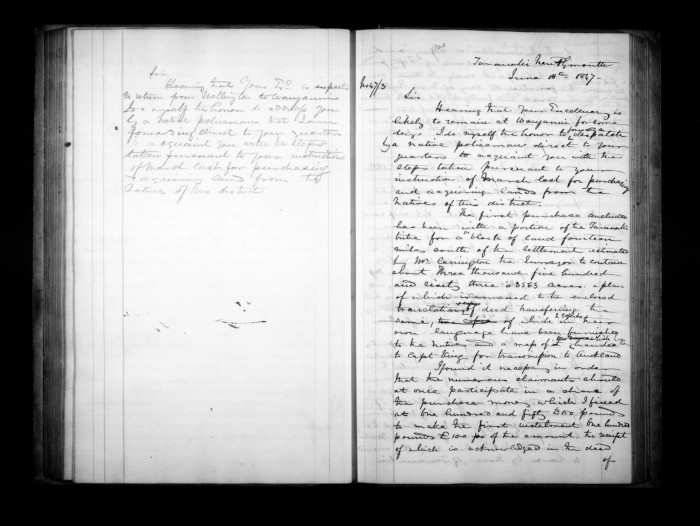 Sir
Hearing that Your Ex is expected
to return from Wellington to Wanganui
I do myself the honor to address you
by a native policeman that I am
forwarding direct to your quarters
to acquaint you with the steps
taken pursuant to your instructions
of March last for purchasing
& acquiring land from the
Natives of this district
No 47/3
Taranaki New Plymouth
June 18th 1847
Sir
Hearing that your Excellency is
likely to remain at Wanganui for some
days I do myself the honor to despatch
by a native policeman direct to your
quarters to acquaint you with the
steps taken pursuant to your
instruction of March last for purchasing
and acquiring lands from the
natives of this district.
The first purchase concluded
has been with a portion of the Taranaki
tribe for a block of land fourteen
miles south of the settlement estimated
by Mr Carrington the Surveyor to contain
about three thousand five hundred
and sixty three "3563 acres a plan
of which is annexed to the enclosed
translation of deed transferring the
same, two copies of which in their
own language have been furnished
to the natives and a map of handed
to Capt King for transmission to Auckland
I found it necessary in order
that the numerous claimants should
at once participate in a share of
the purchase money which I fixed
at one hundred and fifty £150 pounds
to make the first instalment one hundred
pounds £100 of the amount, the receipt
of which is acknowledged in the deed
of